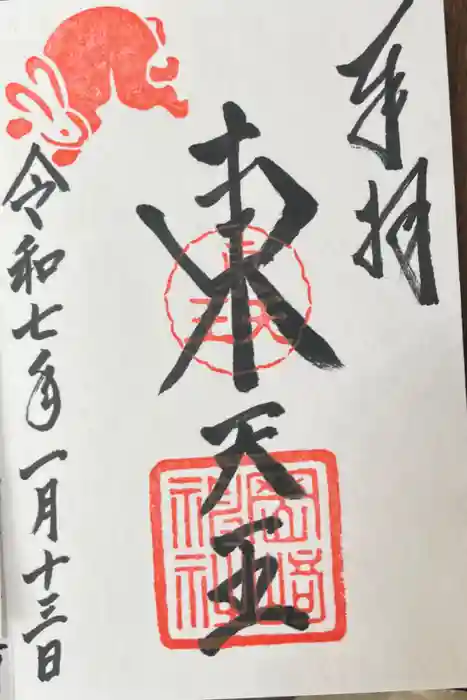 奉拝
東天王
岡崎神社
令和七年一月十三日